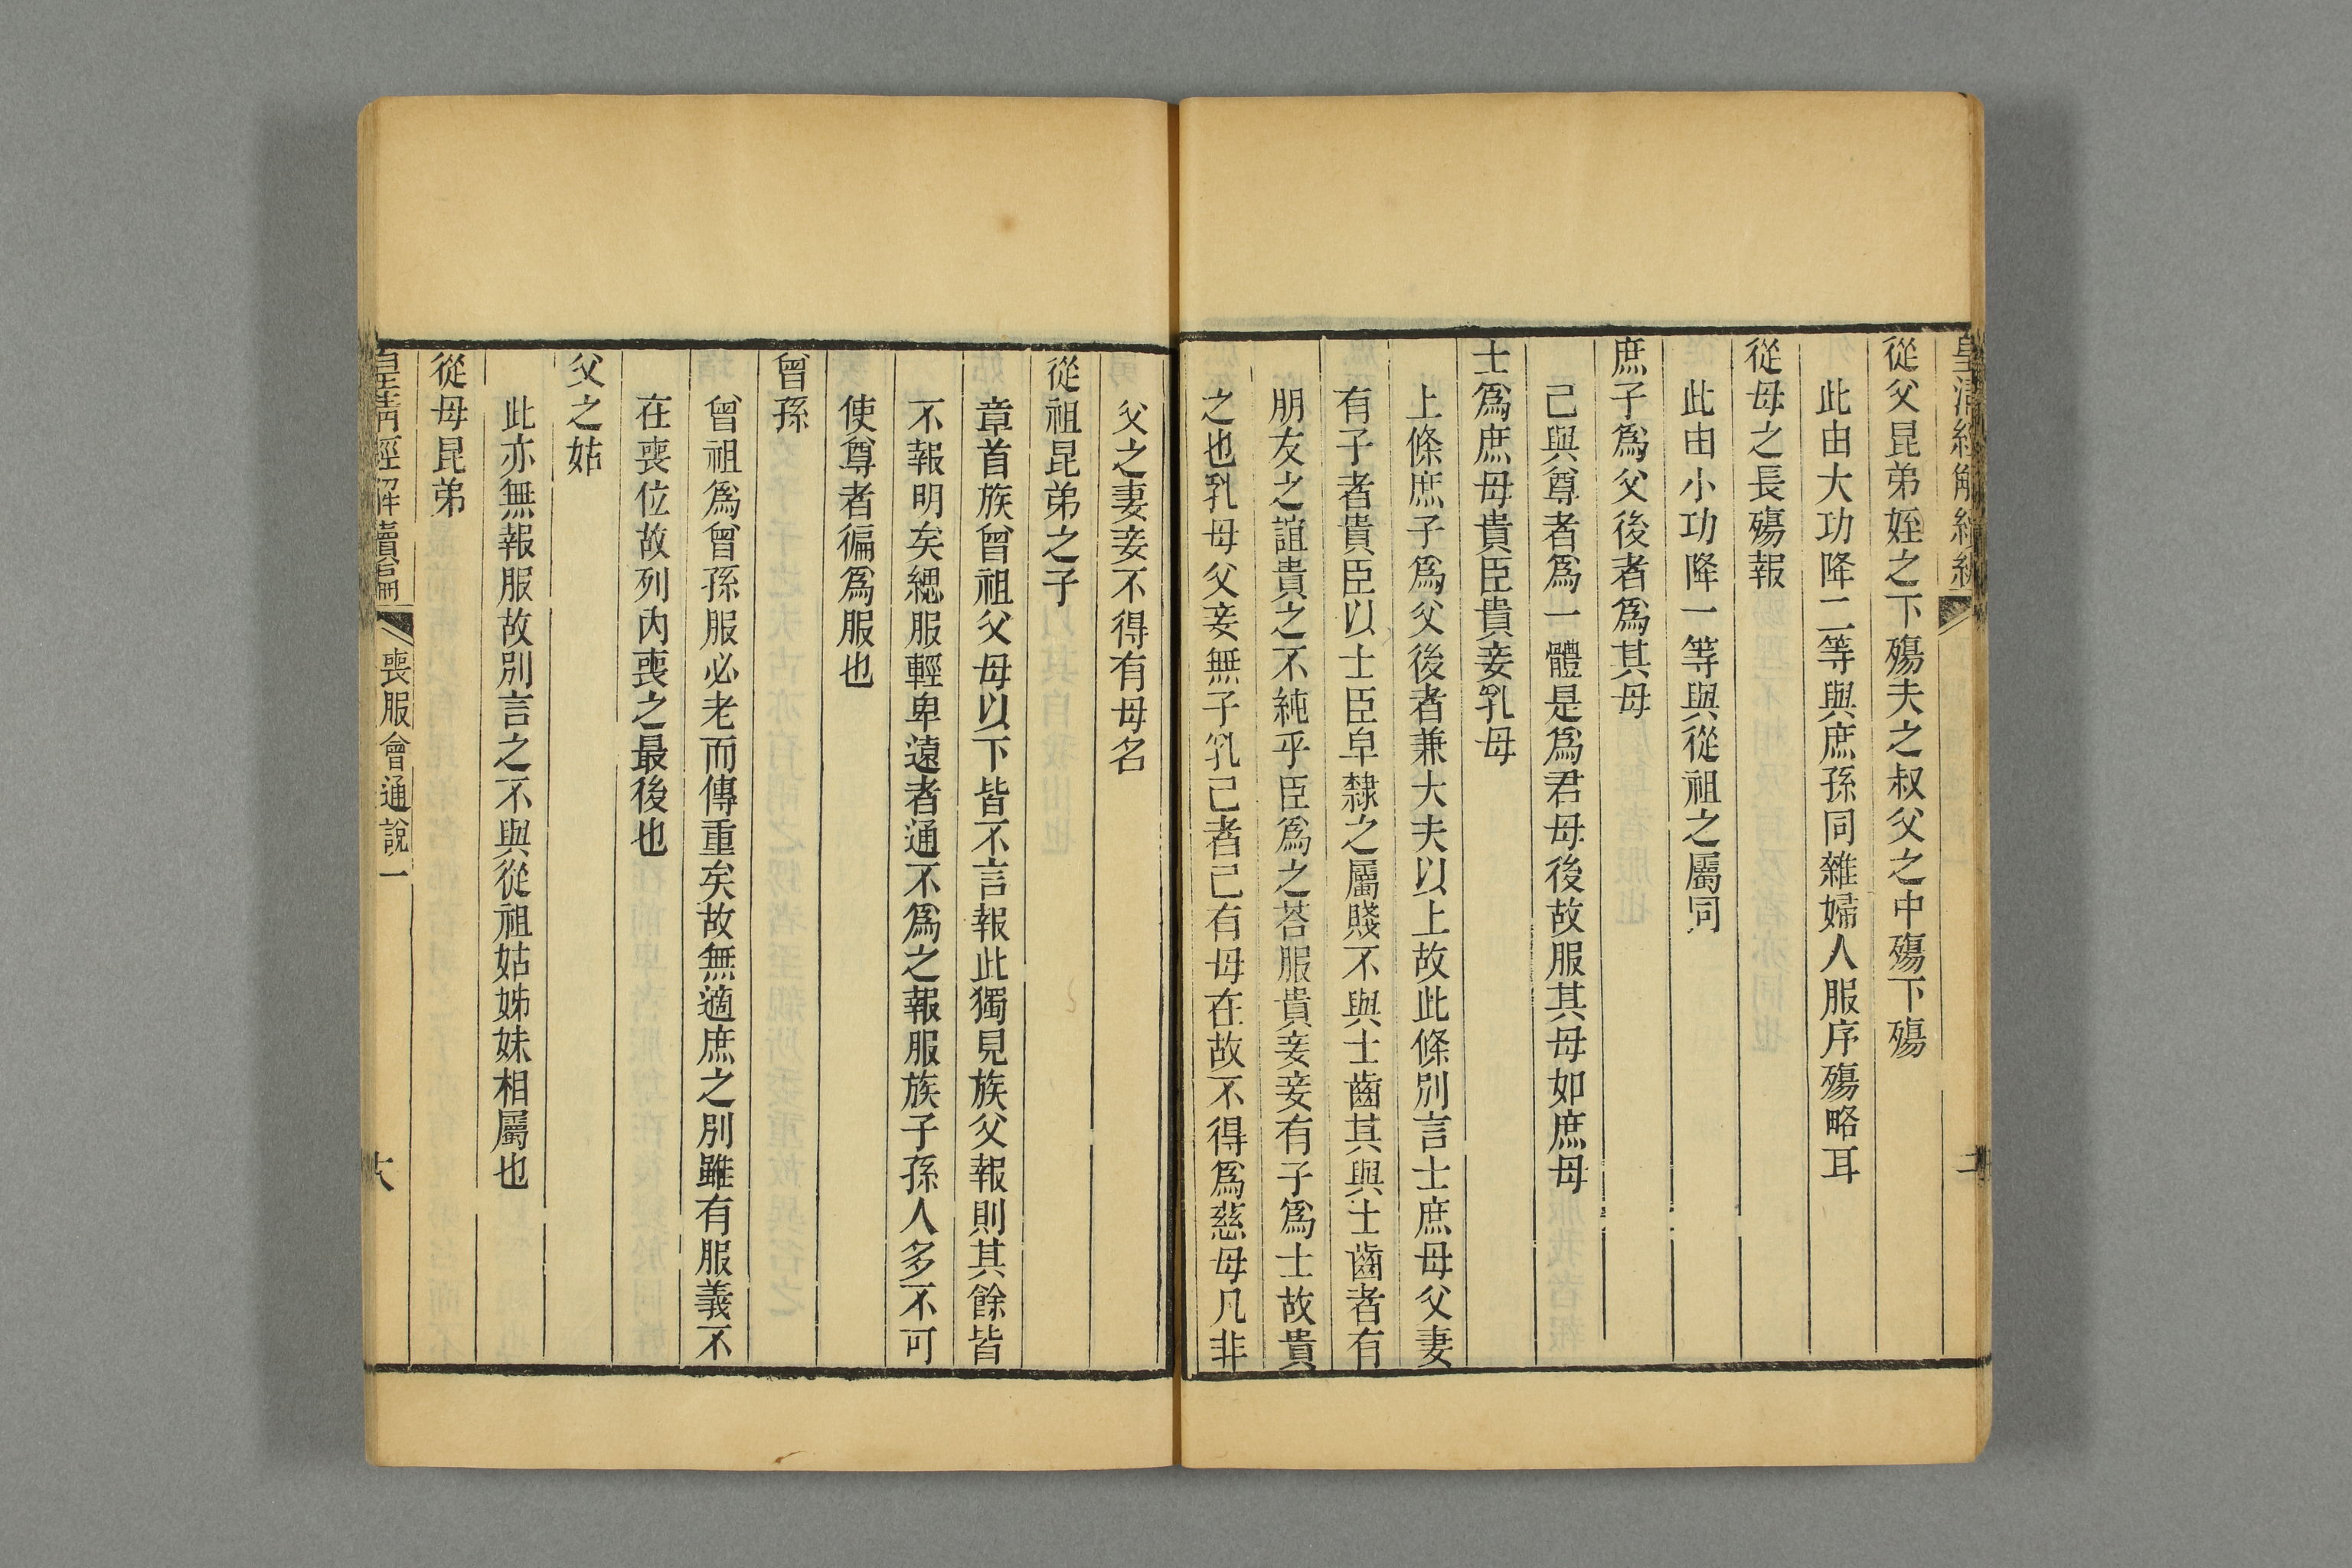 從父昆弟姪之下殤夫之叔父之中殤下殤
此由大功降二等與庶孫同雜婦人服序殤略耳
從母之長殤報
此由小功降一等與從祖之屬同
庶子爲父後者爲其母
己與尊者爲一體是爲君母後故服其母如庶母
士爲庶母貴臣貴妾乳母
上條庶子爲父後者兼大夫以上故此條別言士庶母父妻
有子者貴臣以士臣皁隸之屬賤不與士齒其與士齒者有
朋友之誼貴之不純乎臣爲之荅服貴妾妾有子爲士故貴
之也乳母父妾無子乳己者己有母在故不得爲慈母凡非
父之妻妾不得有母名
從祖昆弟之子
章首族曾祖父母以下皆不言報此獨見族父報則其餘皆
不報明矣緦服輕卑遠者通不爲之報服族子孫人多不可
使尊者徧爲服也
曾孫
曾祖爲曾孫服必老而傳重矣故無適庶之別雖有服義不
在喪位故列內喪之最後也
父之姑
此亦無報服故別言之不與從祖姑姊妹相屬也
從母昆弟
皇清經解續編 喪服會通說一